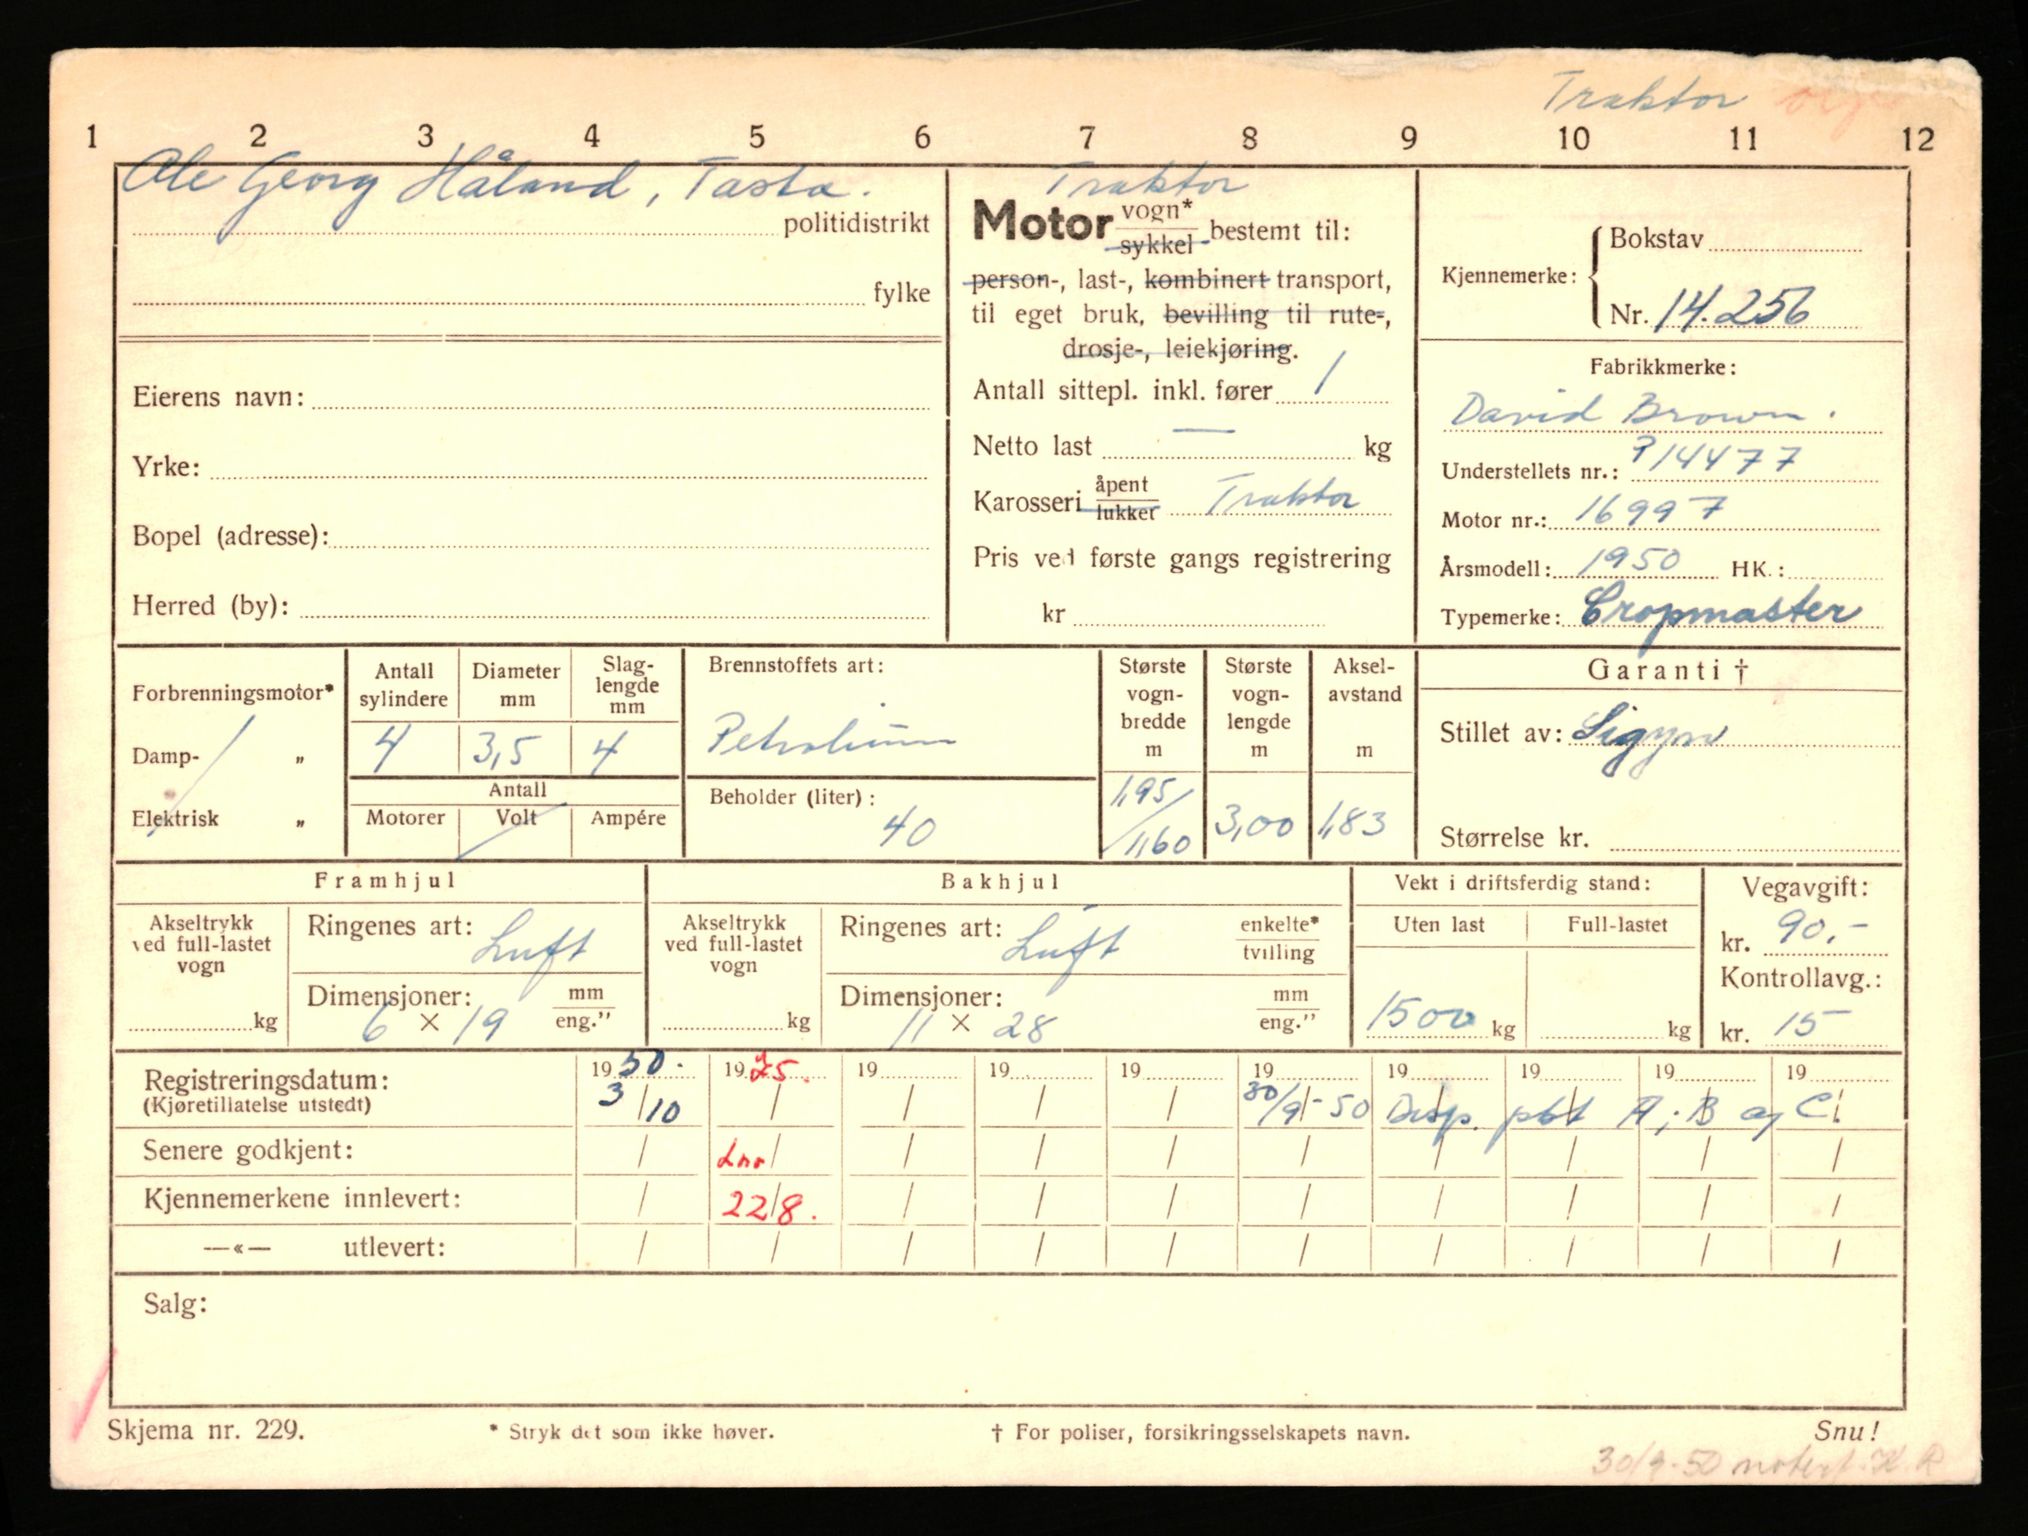 Traktor
1 2 3 4 5 6 7 8 9 10 11 12
Ole Georg Håland, Tasta.
politidistrikt
fylke
Eierens navn:
Yrke:
Bopel (adresse):
Herred (by):
Traktor
Motor vogn* sykkel bestemt til:
person-, last-, kombinert transport,
til eget bruk, bevilling til rute-,
drosje-, leiekjøring.
Antall sittepl. inkl. fører 1
Netto last — kg
Karosseri åpent lukket Traktor
Pris ved første gangs registrering
kr
Kjennemerke: Bokstav
Nr. 14.256
Fabrikkmerke:
David Brown.
Understellets nr.: P14477
Motor nr.: 16997
Årsmodell: 1950 HK.:
Typemerke: Cropmaster
Forbrenningsmotor*
Damp- "
Elektrisk "
Antall sylindere 4
Diameter mm 3,5
Slag-lengde mm 4
Antall
Motorer Volt Ampére
Brennstoffets art:
Petroleum
Beholder (liter):
40
Største vogn-bredde m 1,95/1,60
Største vogn-lengde m 3,00
Aksel-avstand m 1,83
Garanti †
Stillet av: Sigyn
Størrelse kr.
Framhjul
Akseltrykk ved full-lastet vogn
kg
Ringenes art: Luft
Dimensjoner: mm eng."
6 × 19
Bakhjul
Akseltrykk ved full-lastet vogn
kg
Ringenes art: Luft enkelte* tvilling
Dimensjoner: mm eng."
11 × 28
Vekt i driftsferdig stand:
Uten last Full-lastet
1500 kg kg
Vegavgift:
kr. 90,-
Kontrollavg.:
kr. 15
Registreringsdatum: 1950. 1975. 19 19 19 19 19 19 19 19
(Kjøretillatelse utstedt) 3/10 / / / / 30/9-50 Disp. pkt A; B og C.
Senere godkjent: / / / / / / / / / /
Kjennemerkene innlevert: / 22/8. / / / / / / / /
—«— utlevert: / / / / / / / / / /
Salg:
Skjema nr. 229.
* Stryk det som ikke høver.
† For poliser, forsikringsselskapets navn.
Snu!
30/9-50 notert K.R